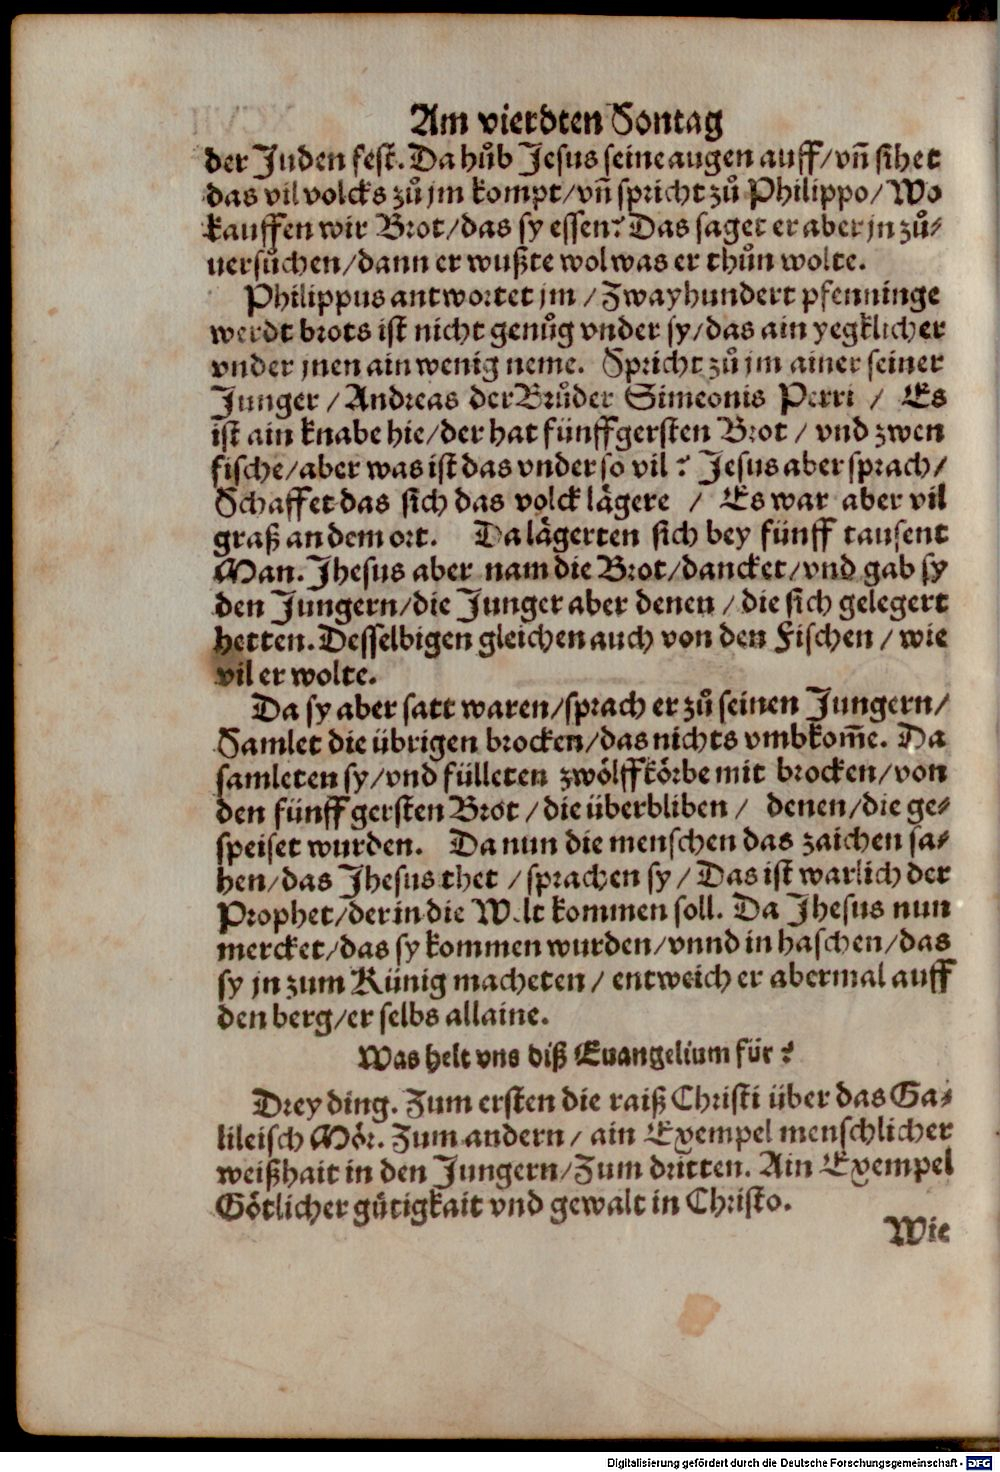 Am vierdten Sontag
der Juden fest. Da hůb Jesus seine augen auff/vñ sihet
das vil volcks zů jm kompt/vñ spricht zů Philippo/Wo
kauffen wir Brot/das sy essen? Das saget er aber jn zů-
uersůchen/dann er wußte wol was er thůn wolte.
Philippus antwortet jm / Zwayhundert pfenninge
werdt brots ist nicht genůg vnder sy/das ain yegklicher
vnder jnen ain wenig neme. Spricht zů jm ainer seiner
Junger / Andreas der Brůder Simeonis Petri / Es
ist ain knabe hie/der hat fünff gersten Brot / vnd zwen
fische/aber was ist das vnder so vil? Jesus aber sprach/
Schaffet das sich das volck lägere / Es war aber vil
graß an dem ort. Da lägerten sich bey fünff tausent
Man. Jhesus aber nam die Brot/dancket/vnd gab sy
den Jungern/die Junger aber denen / die sich gelegert
hetten. Desselbigen gleichen auch von den Fischen / wie
vil er wolte.
Da sy aber satt waren/sprach er zů seinen Jungern/
Samlet die übrigen brocken/das nichts vmbkom̃e. Da
samleten sy/vnd fülleten zwölff körbe mit brocken/von
den fünff gersten Brot / die überbliben / denen/die ge-
speiset wurden. Da nun die menschen das zaichen sa-
hen/das Jhesus thet / sprachen sy / Das ist warlich der
Prophet/der in die Welt kommen soll. Da Jhesus nun
mercket/das sy kommen wurden/vnnd in haschen/das
sy jn zum Künig macheten / entweich er abermal auff
den berg/er selbs allaine.
Was helt vns diß Euangelium für?
Drey ding. Zum ersten die raiß Christi über das Ga-
lileisch Mör. Zum andern / ain Exempel menschlicher
weißhait in den Jungern/Zum dritten. Ain Exempel
Götlicher gütigkait vnd gewalt in Christo.
Wie
Digitalisierung gefördert durch die Deutsche Forschungsgemeinschaft - DFG